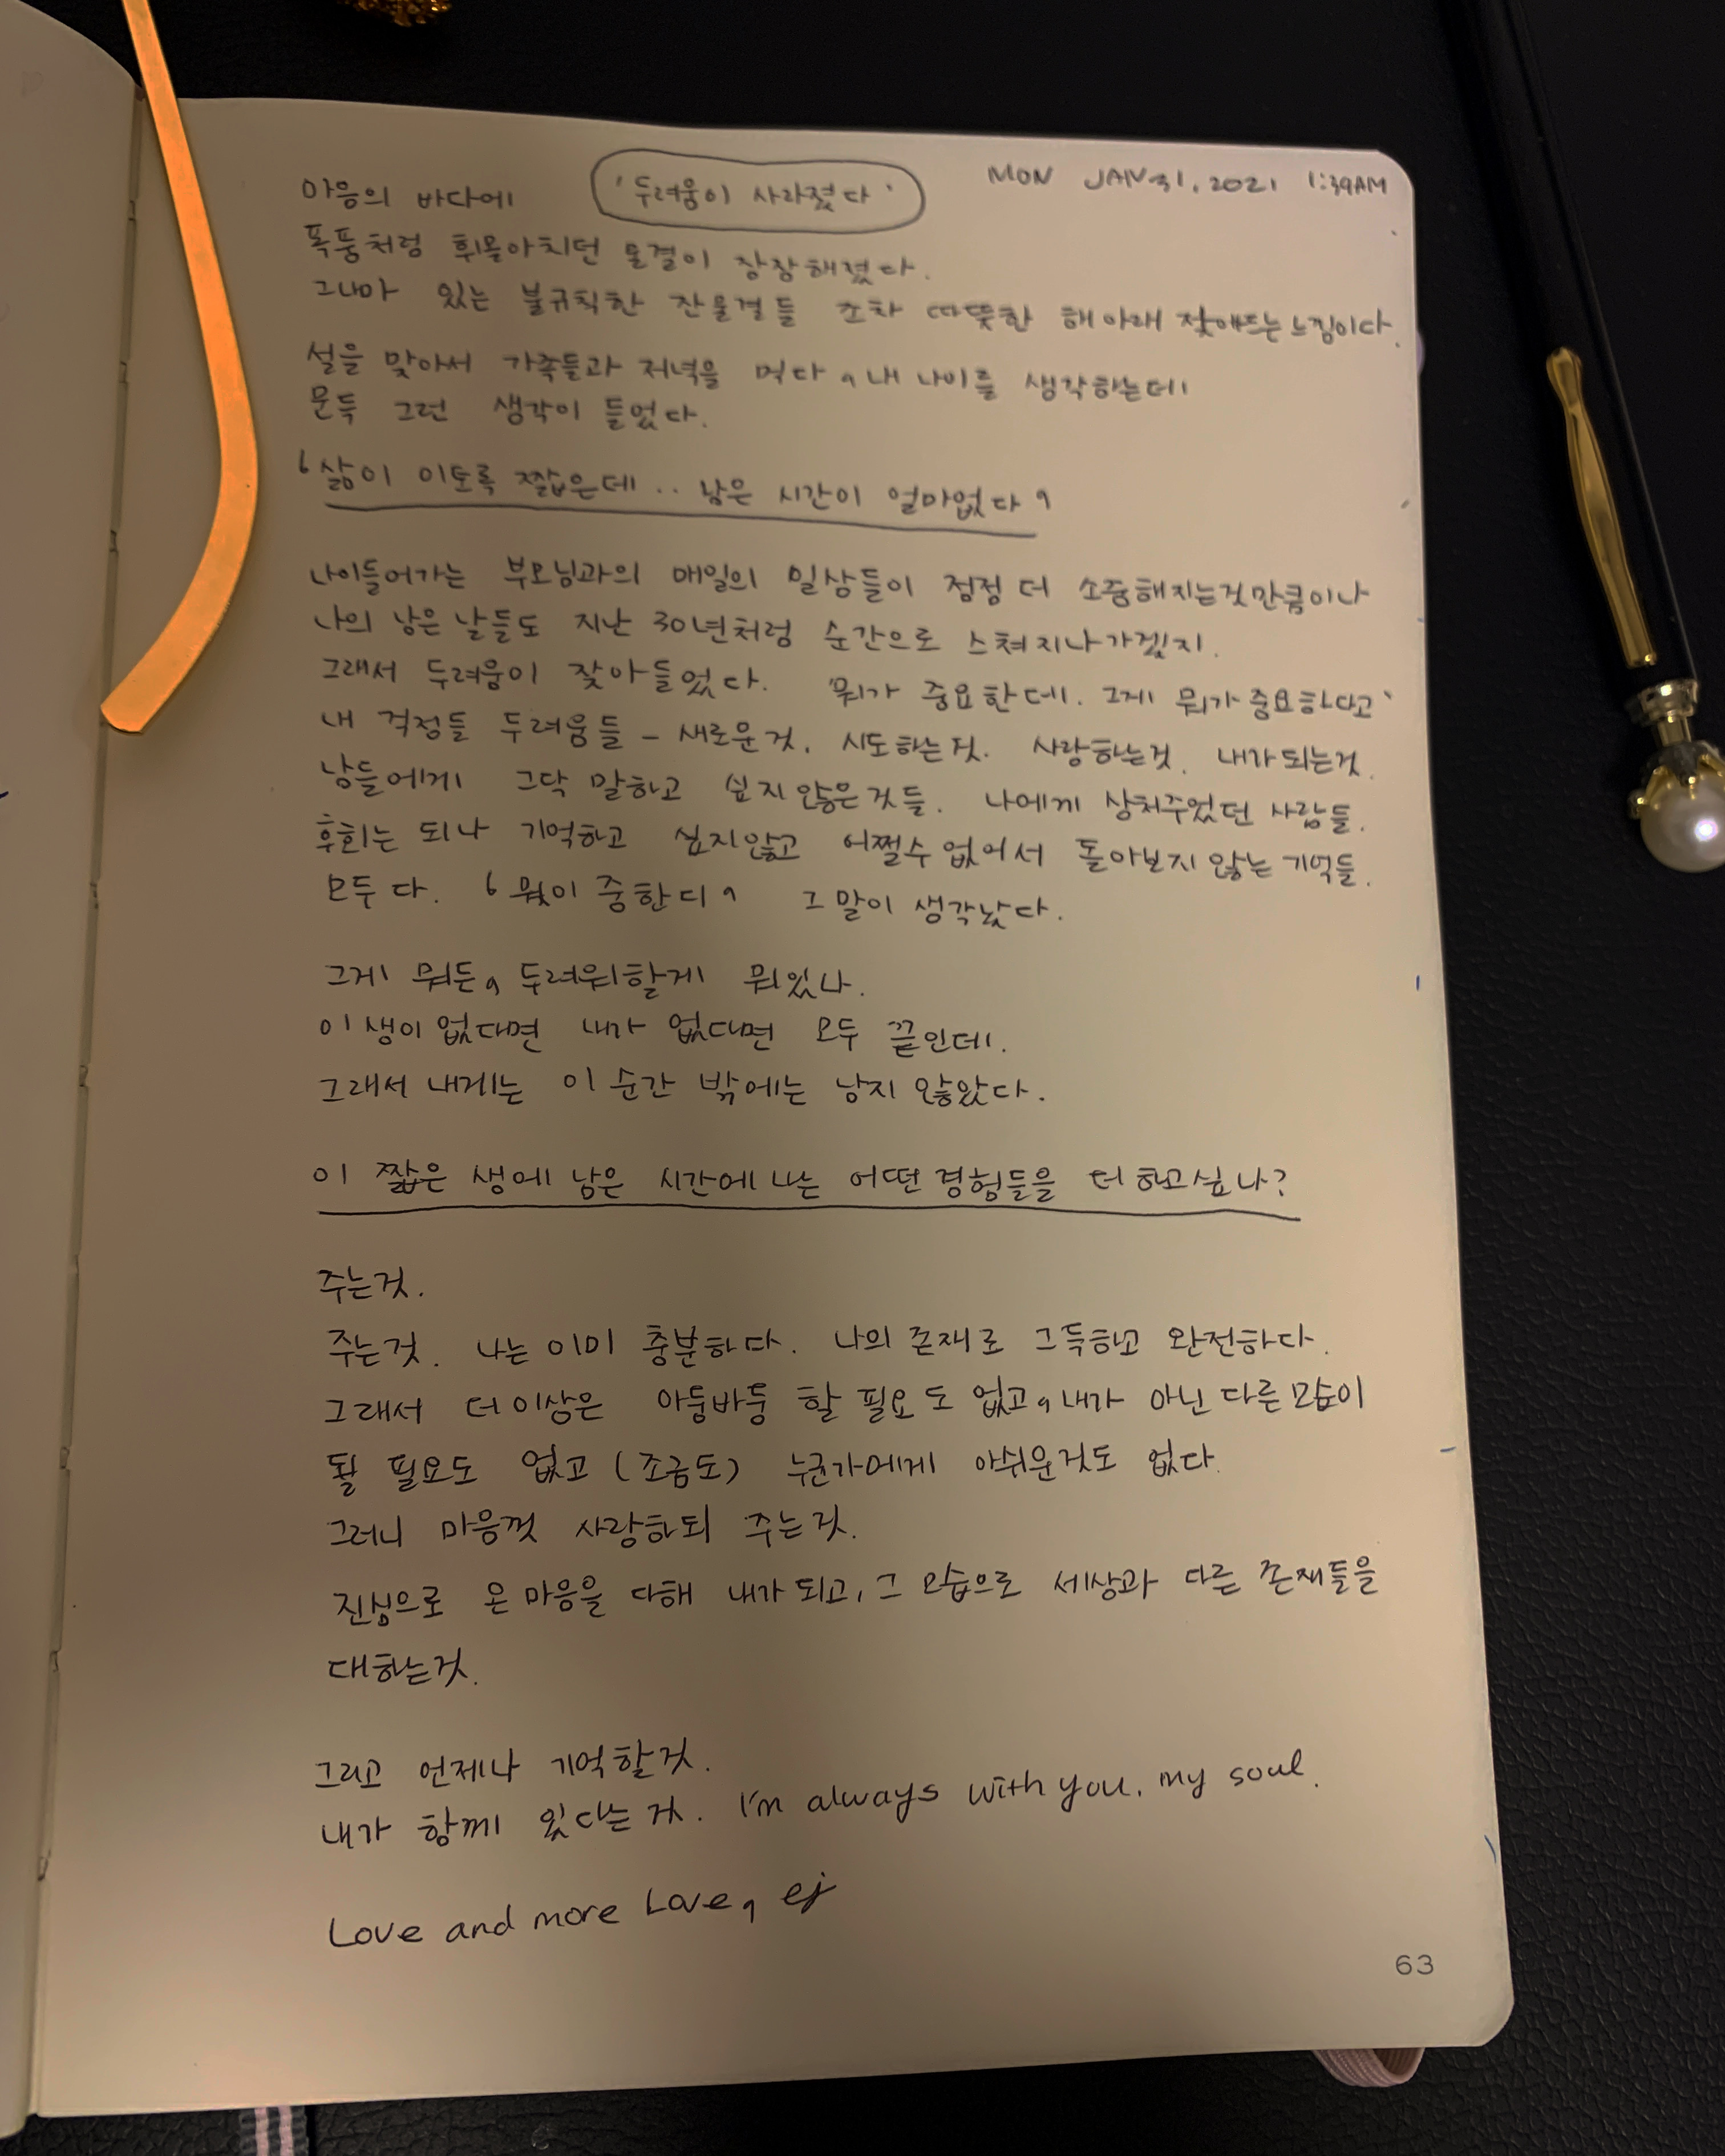 마음의 바다에 '두려움이 사라졌다' MON JAN 31, 2021 1:39AM
폭풍처럼 휘몰아치던 물결이 잠잠해졌다.
그나마 있는 불규칙한 잔물결들 조차 따뜻한 해 아래 잦애드는 느낌이다.
설을 맞아서 가족들과 저녁을 먹다, 내 나이를 생각하는데
문득 그런 생각이 들었다.
'삶이 이토록 짧은데.. 남은 시간이 얼마없다'
나이들어가는 부모님과의 매일의 일상들이 점점 더 소중해지는것만큼이나
나의 남은 날들도 지난 30년처럼 순간으로 스쳐지나가겠지.
그래서 두려움이 잦아들었다. '뭐가 중요한데. 그게 뭐가 중요하다고'
내 걱정들 두려움들 - 새로운것. 시도하는것. 사랑하는것. 내가되는것.
남들에게 그닥 말하고 싶지않은것들. 나에게 상처주었던 사람들.
후회는 되나 기억하고 싶지않고 어쩔수없어서 돌아보지 않는 기억들.
모두 다. '뭣이 중한디' 그 말이 생각났다.
그게 뭐든, 두려워할게 뭐있나.
이 생이 없다면 내가 없다면 모두 끝인데.
그래서 내게는 이 순간 밖에는 남지 않았다.
이 짧은 생에 남은 시간에 나는 어떤 경험들을 더 하고싶나?
주는것.
주는것. 나는 이미 충분하다. 나의 존재로 그득하고 완전하다.
그래서 더이상은 아둥바둥 할 필요도 없고, 내가 아닌 다른 모습이
될 필요도 없고 (조금도) 누군가에게 아쉬운것도 없다.
그러니 마음껏 사랑하되 주는것.
진심으로 온 마음을 다해 내가 되고, 그 모습으로 세상과 다른 존재들을
대하는것.
그리고 언제나 기억할것.
내가 함께 있다는 것. I'm always with you. my soul.
Love and more Love, ej
63